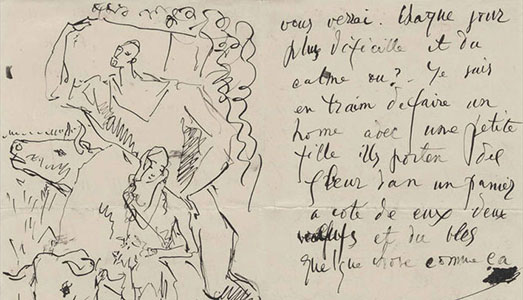 vous verrai. Chaque jour
plus difficille et du
calme ou? Je suis
en traim de faire un
home avec une petite
fille ills porten des
fleur dan un panier
a cote de eux deux
et du bles
quelque chose comme ca